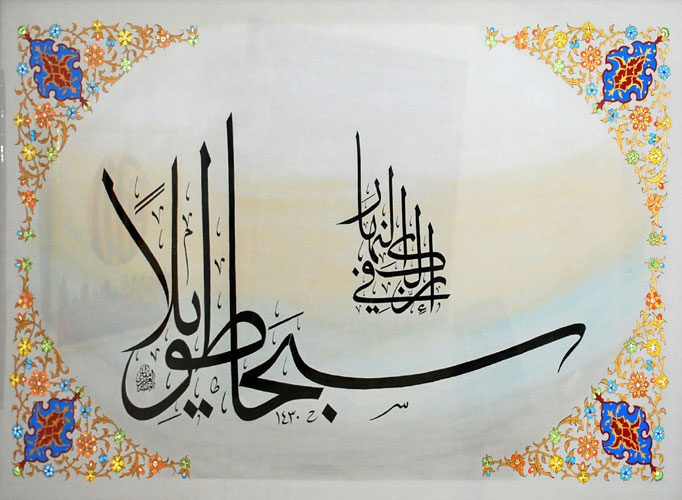 إن لك في النهار
سبحا طويلا
١٤٣٠